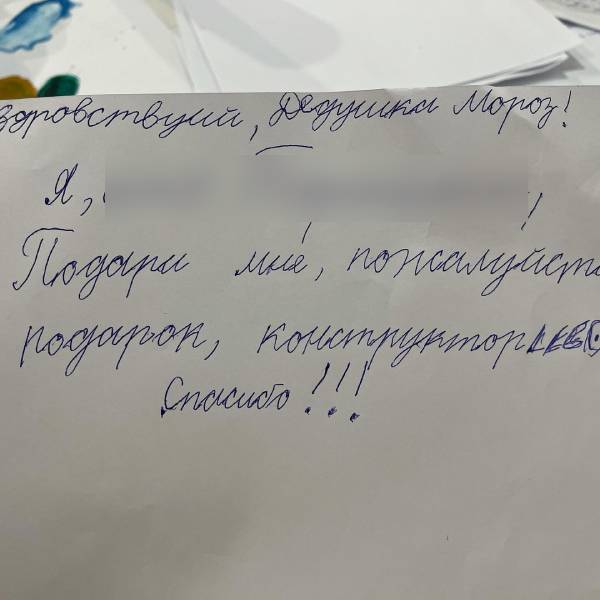 Здравствуй, Дедушка Мороз!
Я,
Подари мне, пожалуйста
подарок, конструктор LEGO.
Спасибо!!!